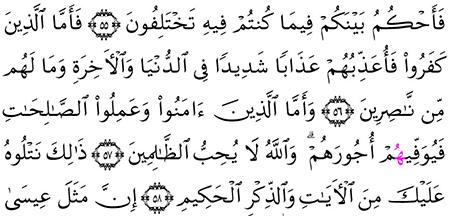 فَأَحْكُمُ بَيْنَكُمْ فِيمَا كُنتُمْ فِيهِ تَخْتَلِفُونَ ﴿٥٥﴾ فَأَمَّا ٱلَّذِينَ
كَفَرُوا۟ فَأُعَذِّبُهُمْ عَذَابًا شَدِيدًا فِى ٱلدُّنْيَا وَٱلْـَٔاخِرَةِ وَمَا لَهُم
مِّن نَّـٰصِرِينَ ﴿٥٦﴾ وَأَمَّا ٱلَّذِينَ ءَامَنُوا۟ وَعَمِلُوا۟ ٱلصَّـٰلِحَـٰتِ
فَيُوَفِّيهِمْ أُجُورَهُمْ ۗ وَٱللَّهُ لَا يُحِبُّ ٱلظَّـٰلِمِينَ ﴿٥٧﴾ ذَٰلِكَ نَتْلُوهُ
عَلَيْكَ مِنَ ٱلْـَٔايَـٰتِ وَٱلذِّكْرِ ٱلْحَكِيمِ ﴿٥٨﴾ إِنَّ مَثَلَ عِيسَىٰ